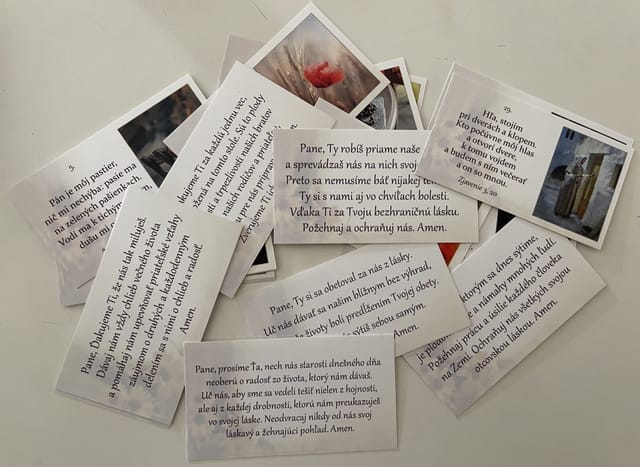 5.
Pán je môj pastier,
nič mi nechýba: pasie ma
na zelených pasienkach.
Vodí ma k tichým
dušu mi
Ti za každú jednu vec,
na tomto stole. Sú to plody
a trpezlivosti našich bratov
našich rodičov a
pre nás
Pane, Ty robíš priame naše
a sprevádzaš nás na nich
Preto sa nemusíme báť nijakej
Ty si s nami aj vo chvíľach bolesti.
Vďaka Ti za Tvoju bezhraničnú lásku.
Požehnaj a ochraňuj nás. Amen.
29.
Hľa, stojím
pri dverách a klopem.
Kto počúvne môj hlas
a otvorí dvere,
k tomu vojdem
a budem s ním večerať
a on so mnou.
Zjavenie 3, 20
Pane, Ďakujeme Ti, že nás tak miluješ.
Dávaj nám vždy chlieb večného života
a pomáhaj nám upevňovať priateľské vzťahy
záujmom o druhých a každodenným
delením sa s nimi o chlieb a radosť.
Amen.
Pane, Ty si sa obetoval za nás z lásky.
Uč nás dávať sa našim blížnym bez výhrad,
životy boli predĺžením Tvojej obety.
sýtiš sebou samým.
Amen.
ktorým sa dnes sýtime,
je
a námahy mnohých ľudí.
Požehnaj prácu a úsilie každého človeka
na Zemi. Ochraňuj nás všetkých svojou
otcovskou láskou. Amen.
Pane, prosíme Ťa, nech nás starosti dnešného dňa
neoberú o radosť zo života, ktorý nám dávaš.
Uč nás, aby sme sa vedeli tešiť nielen z hojnosti,
ale aj z každej drobnosti, ktorú nám preukazuješ
vo svojej láske. Neodvracaj nikdy od nás svoj
láskavý a žehnajúci pohľad. Amen.